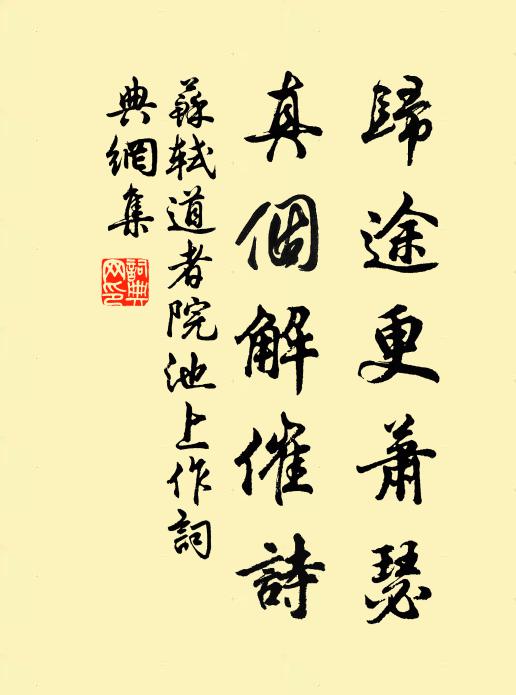 歸途更蕭瑟
真個解催詩
蘇軾道者院池上作詞
典網集
詞典网印